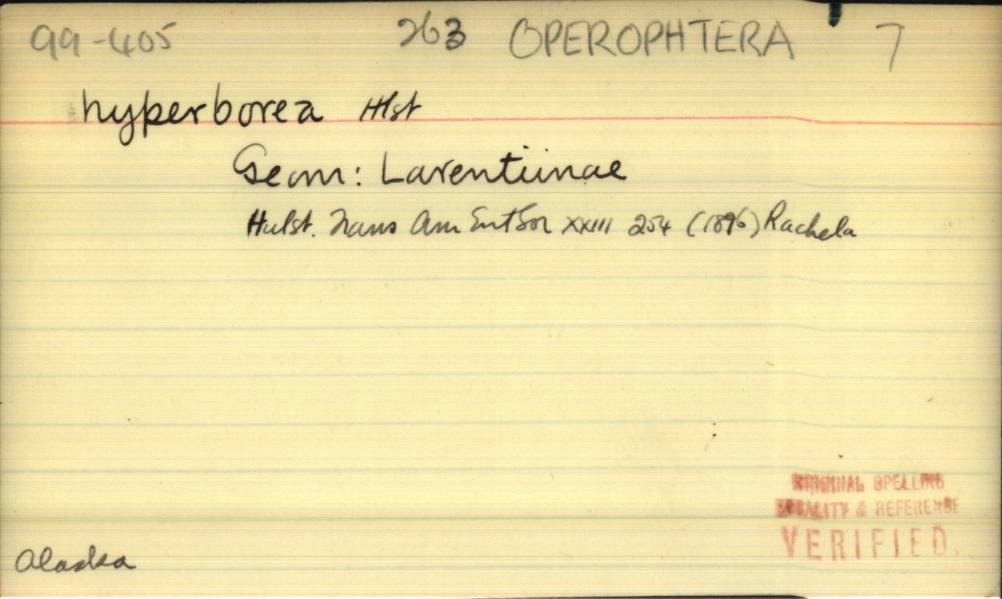 99-405 263 OPEROPHTERA 7
hyperborea Hlst
Geom: Larentiinae
Hulst. Trans Am Ent Soc XXIII 254 (1896) Rachela
ORIGINAL SPELLING
LOCALITY & REFERENCE
VERIFIED.
Alaska